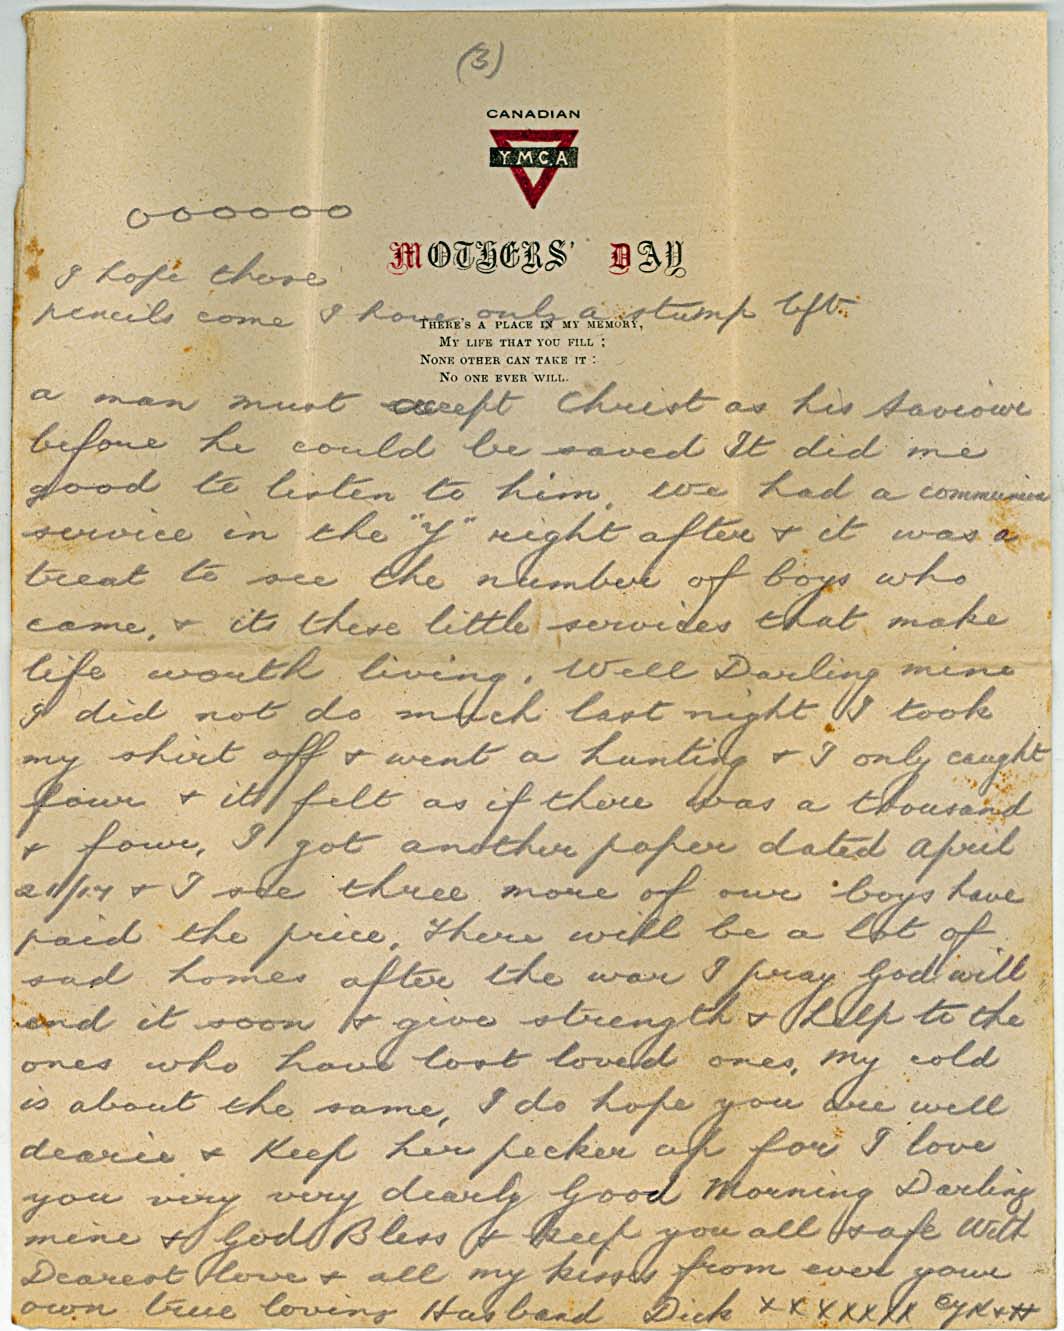 (3)
CANADIAN
YMCA
oooooo
MOTHERS' DAY
I hope those
pencils come I have only a stump left.
THERE'S A PLACE IN MY MEMORY,
MY LIFE THAT YOU FILL ;
NONE OTHER CAN TAKE IT :
NO ONE EVER WILL.
a man must accept Christ as his Saviour
before he could be saved It did me
good to listen to him. We had a communion
service in the "Y" right after & it was a
treat to see the number of boys who
came, & its these little services that make
life worth living. Well Darling mine
I did not do much last night I took
my shirt off & went a hunting & I only caught
four & it felt as if there was a thousand
& four, I got another paper dated April
21/17 & I see three more of our boys have
paid the price. There will be a lot of
sad homes after the war I pray God will
end it soon & give strength & help to the
ones who have lost loved ones, My cold
is about the same, I do hope you are well
dearie & Keep her pecker up for I love
you very very dearly Good Morning Darling
mine & God Bless & keep you all safe With
Dearest love & all my kisses from ever your
own true loving Husband Dick xxxxxxx